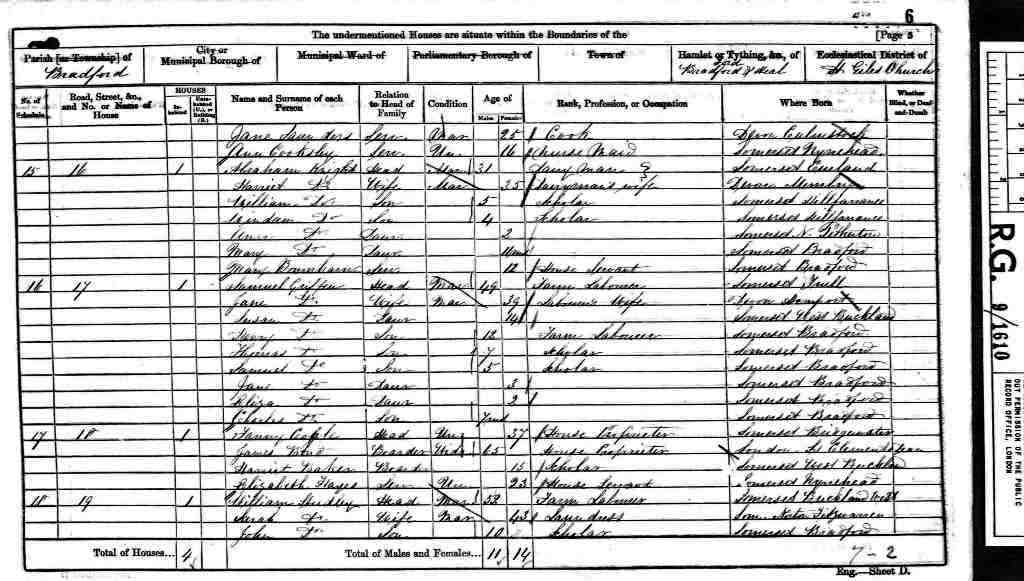 6
The undermentioned Houses are situate within the Boundaries of the [Page 5
Parish [or Township] of City or Municipal Borough of Municipal Ward of Parliamentary Borough of Town of Hamlet or Tything, &c., of Ecclesiastical District of
Bradford Bradford St Giles Church
No. of Schedule Road, Street, &c., and No. or Name of House HOUSES Inhabited Uninhabited (U.), or Building (B.) Name and Surname of each Person Relation to Head of Family Condition Age of Males Females Rank, Profession, or Occupation Where Born Whether Blind, or Deaf-and-Dumb
Jane Saunders Serv Mar 25 Cook Devon Culmstock
Ann Cooksley Serv Un 16 Nurse Maid Somerset Nynehead
15 16 1 Abraham Knight Head Mar 31 Somerset
Harriet Do Wife Mar 35 wife Devon Membury
William Do Son 5 Scholar Somerset Hillfarrance
Do Son 4 Scholar Somerset Hillfarrance
Do Daur 2 Somerset N. Petherton
Mary Do Daur Somerset Bradford
Mary Serv 12 House Servant Somerset Bradford
16 17 1 Samuel Head Mar 49 Farm Labourer Somerset Trull
Jane Do Wife Mar 39 Labourer's Wife Devon
Susan Do Daur 14 Somerset West Buckland
Do Son 12 Farm Labourer Somerset Bradford
Thomas Do Son 7 Scholar Somerset Bradford
Samuel Do Son 5 Scholar Somerset Bradford
Jane Do Daur 3 Somerset Bradford
Eliza Do Daur 2 Somerset Bradford
Charles Do Son 7 ms Somerset Bradford
17 18 1 Fanny Head Un 37 House Proprietor Somerset Bridgewater
James Bond Boarder Widr 65 House Proprietor London St Clements
Harriet Baker Boarder 15 Scholar Somerset West Buckland
Elizabeth Hayes Serv Un 23 House Servant Somerset Nynehead
18 19 1 William Head Mar 53 Farm Labourer Somerset Buckland West
Sarah Do Wife Mar 43 Laundress Som. Norton Fitzwarren
John Do Son 10 Scholar Somerset Bradford
Total of Houses... 4 Total of Males and Females... 11 14 7 - 2
Eng.—Sheet D.
R.G. 9/1610
OUT PERMISSION OF THE PUBLIC
RECORD OFFICE, LONDON